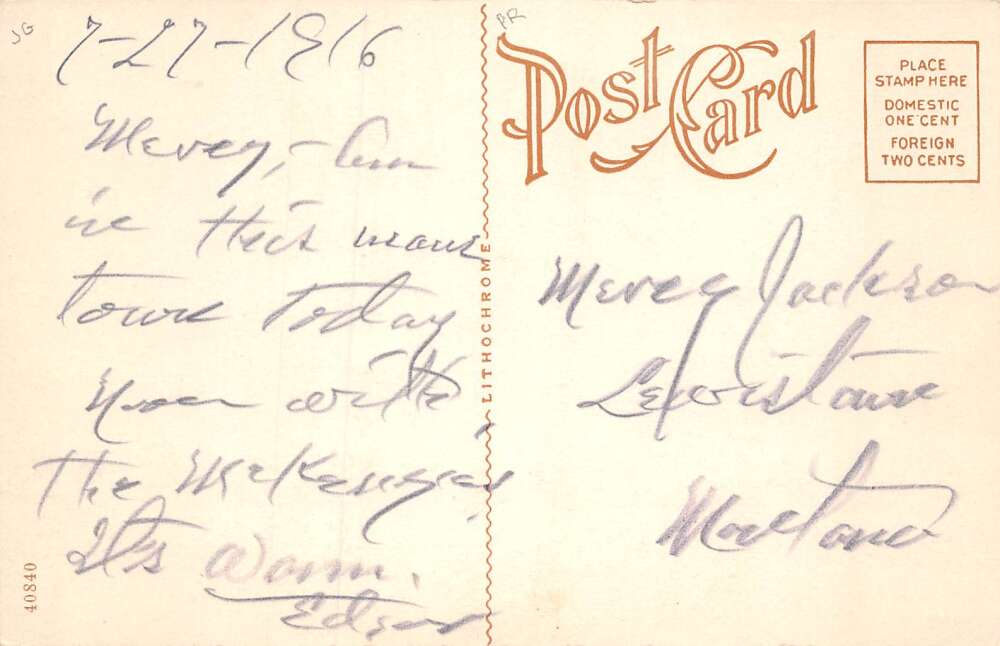 JG
7-27-1916
Mercy, - Am
in this mans
town today
with
the McKenzies,
It's warm.
Edgar
40840
LITHOCHROME
PR
Post Card
PLACE
STAMP HERE
DOMESTIC
ONE CENT
FOREIGN
TWO CENTS
Mercy Jackson
Lewistown
Montana